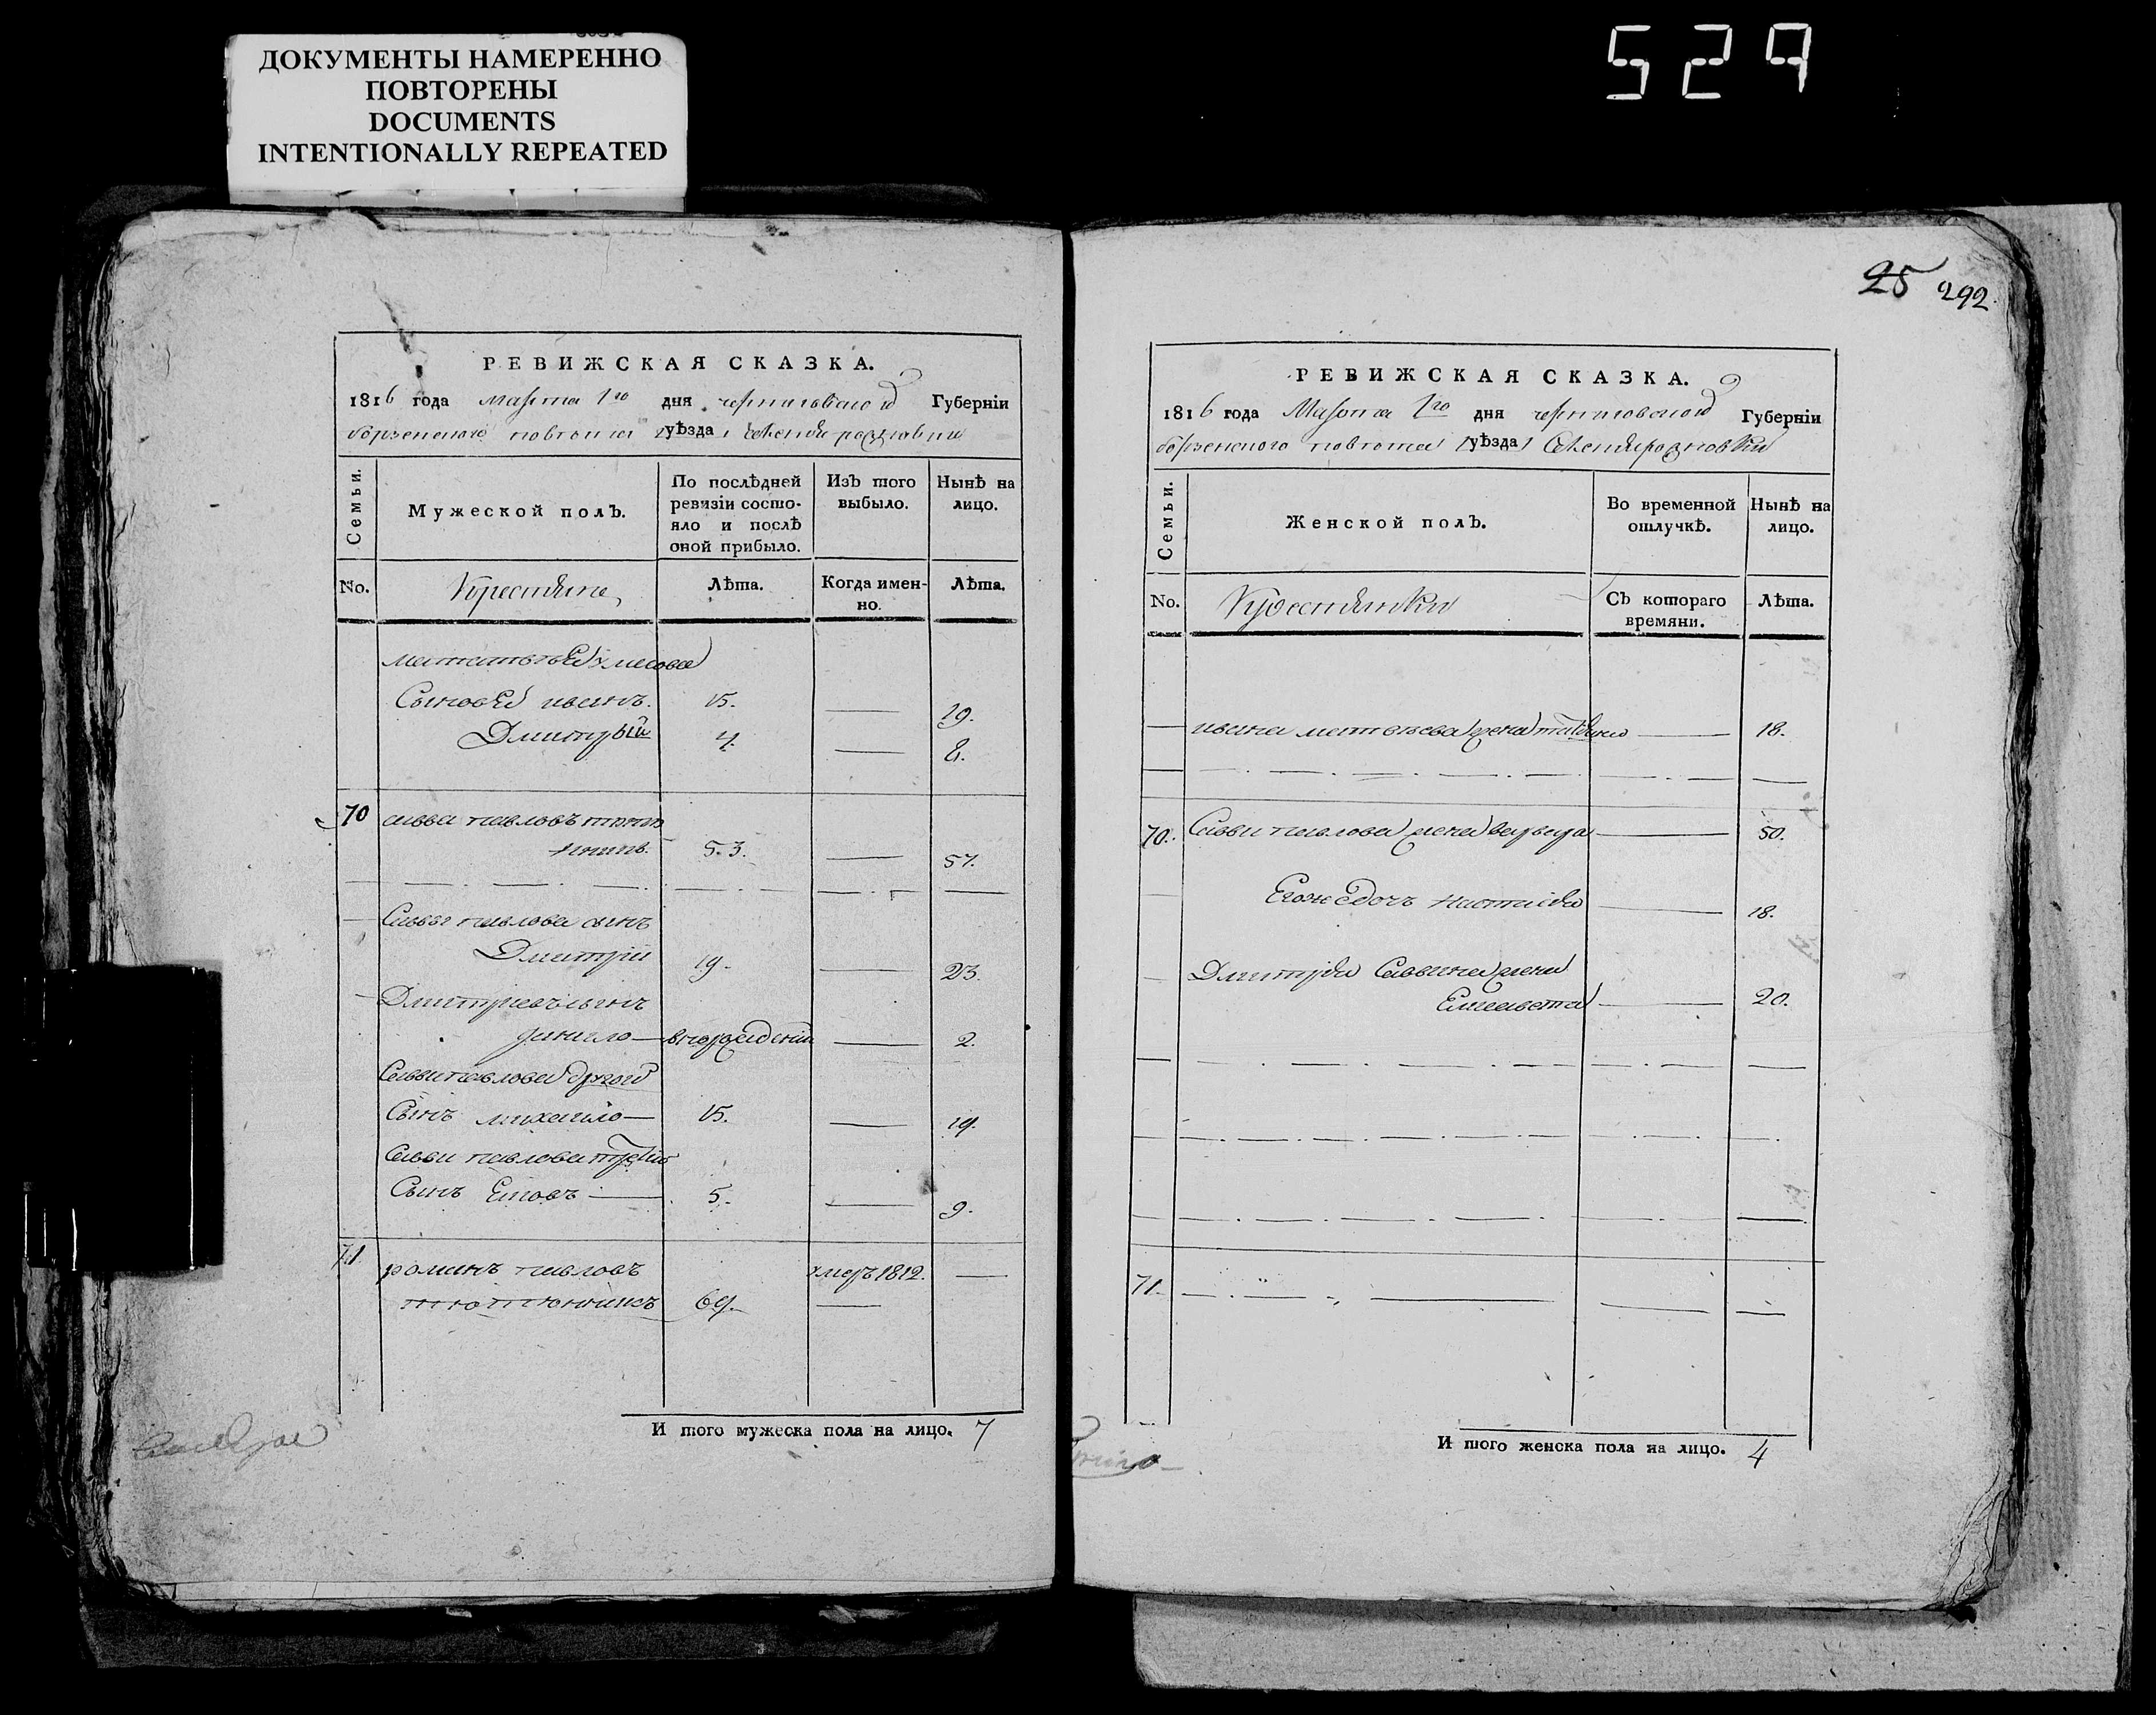 529
ДОКУМЕНТЫ НАМЕРЕННО
ПОВТОРЕНЫ
DOCUMENTS
INTENTIONALLY REPEATED
РЕВИЖСКАЯ СКАЗКА.
1816 года Марта 1го дня черниговской Губерніи
борзенского повета уѣзда
Семьи.
Мужеской полъ.
По послѣдней ревизіи состояло и послѣ оной прибыло.
Изъ того выбыло.
Нынѣ на лицо.
No.
Крестяне
Лѣта.
Когда именно.
Лѣта.
Сыновья иванъ. 15. — 19.
Дмитрый 4. — 8.
70 савва павловъ
53. — 57.
Саввы павлова сынъ
Дмитрій 19. — 23.
Дмитріевъ сынъ
данило — 2.
Саввы павлова другой
Сынъ михайло — 15. — 19.
Саввы павлова третій
Сынъ — 5. — 9.
71 романъ павловъ умеръ 1812. —
тютюнникъ 69. —
И того мужеска пола на лицо. 7
25 292.
РЕВИЖСКАЯ СКАЗКА.
1816 года Марта 1го дня черниговской Губерніи
борзенского повета уѣзда
Семьи.
Женской полъ.
Во временной отлучкѣ.
Нынѣ на лицо.
No.
Крестянки
Съ котораго времяни.
Лѣта.
— ивана матвеева жена — 18.
70. Саввы павлова жена варвара — 50.
Егожъ дочъ настасія — 18.
Дмитрія Саввина жена
Елисавета — 20.
71.
И того женска пола на лицо. 4